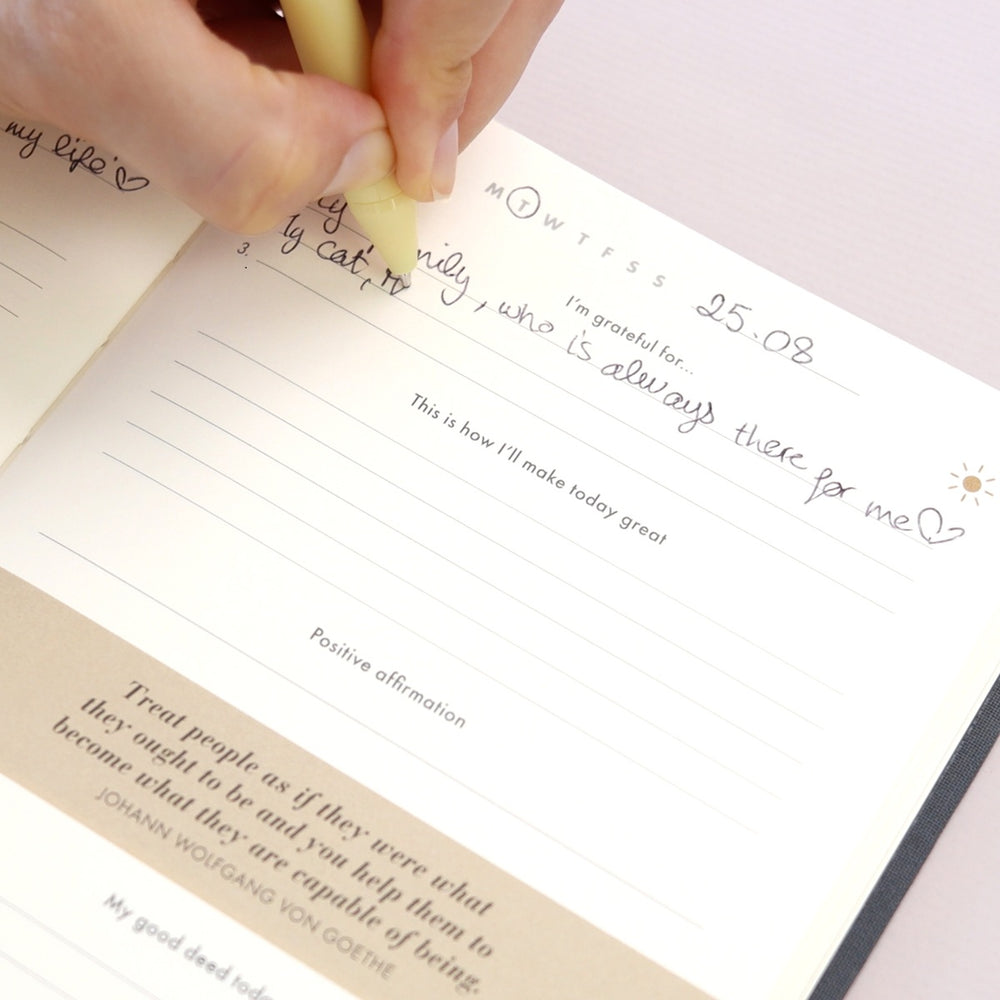 my life ♡
M T W T F S S
25.08
I'm grateful for...
, who is always there for me ♡
3.
cat,
This is how I'll make today great
Positive affirmation
Treat people as if they were what
they ought to be and you help them to
become what they are capable of being.
JOHANN WOLFGANG VON GOETHE
My good deed